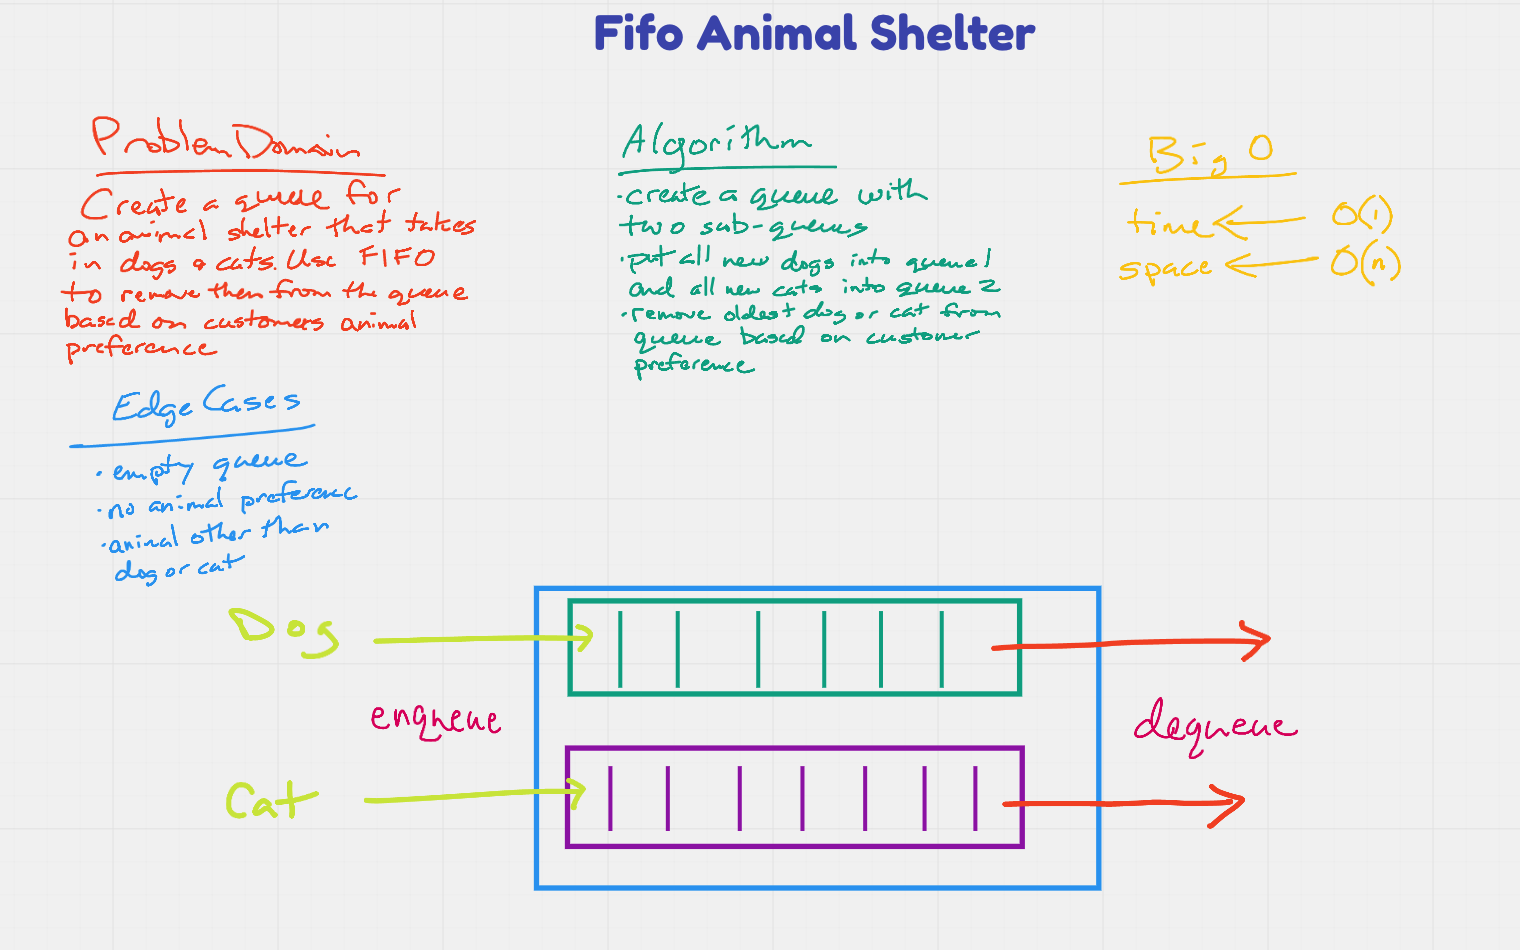 Fifo Animal Shelter
Problem Domain
Create a queue for
an animal shelter that takes
in dogs & cats. Use FIFO
to remove them from the queue
based on customers animal
preference
Edge Cases
· empty queue
· no animal preference
· animal other than
dog or cat
Algorithm
· create a queue with
two sub-queues
· put all new dogs into queue 1
and all new cats into queue 2
· remove oldest dog or cat from
queue based on customer
preference
Big O
time ← O(1)
space ← O(n)
Dog
enqueue
Cat
dequeue